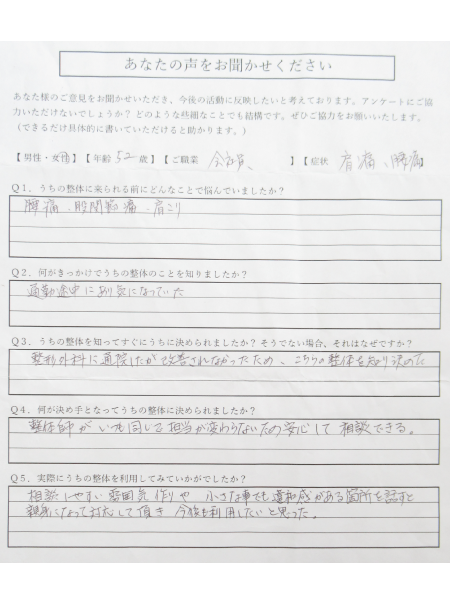 あなたの声をお聞かせください
あなた様のご意見をお聞かせいただき、今後の活動に反映したいと考えております。アンケートにご協
力いただけないでしょうか？どのような些細なことでも結構です。ぜひご協力をお願いいたします。
（できるだけ具体的に書いていただけると助かります。）
【男性・女性】【年齢 52 歳】【ご職業 会社員 】【症状 肩痛、腰痛】
Q1．うちの整体に来られる前にどんなことで悩んでいましたか？
腰痛、股関節痛、肩こり
Q2．何がきっかけでうちの整体のことを知りましたか？
通勤途中にあり気になっていた
Q3．うちの整体を知ってすぐにうちに決められましたか？そうでない場合、それはなぜですか？
整形外科に通院したが改善されなかったため、こちらの整体を知り決めた
Q4．何が決め手となってうちの整体に決められましたか？
整体師がいつも同じで担当が変わらないため安心して相談できる。
Q5．実際にうちの整体を利用してみていかがでしたか？
相談しやすい雰囲気作りや 小さな事でも違和感がある箇所を話すと
親身になって対応して頂き 今後も利用したいと思った。